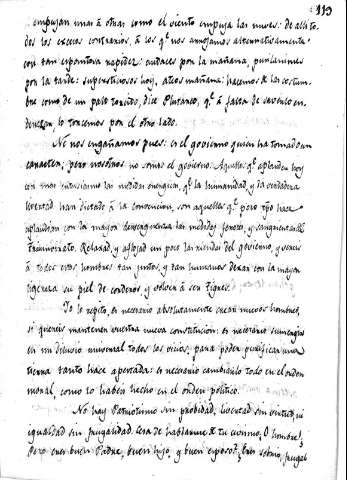 113
empujan unas à otras como el viento empuja las nubes: de ahi to-
dos los excesos contrarios, à los qᵉ nos arrojamos alternativamente
con tan espantosa rapidez: audaces por la mañana, pusilanimes
por la tarde: supersticiosos hoy, ateos mañana: hacemos las costum-
bre como de un palo torcido, dice Plutarco, qᵉ à falta de saverlo en-
derezar, lo torcemos por el otro lado.
No nos engañamos pues: en el govierno quien ha tomado un
caracter; pero nosotros no somos el govierno: Aquellos qᵉ aplauden hoy
con mas entusiasmo las medidas energicas, qᵉ la humanidad, y la verdadera
livertad han dictado à la convencion, son aquellos qᵉ poco hace
aplaudian con la mayor las medidas feroces, y sanguinarias
Triunvirato. Relaxad, y aflojad un poco las riendas del govierno, y vereis
à todos estos hombres tan justos, y tan humanos dexar con la mayor
ligereza su piel de corderos y volver à ser Tigres.
Yo lo repito, es necesario absolutamente crear nuevos hombres,
si quereis mantener vuestra nueva constitucion: es necesario sumergir
en un diluvio universal todos los vicios, para poder purificar una
tierra tanto hace apestada: es necesario cambiarlo todo en el orden
moral, como lo haveis hecho en el orden politico.
No hay Patriotismo sin probidad, livertad sin virtud, ni
igualdad sin frugalidad. Cesa de hablarme de tu civismo, O hombre!
Pero eres buen Padre, buen hijo, y buen esposo? Eres sobrio, frugal